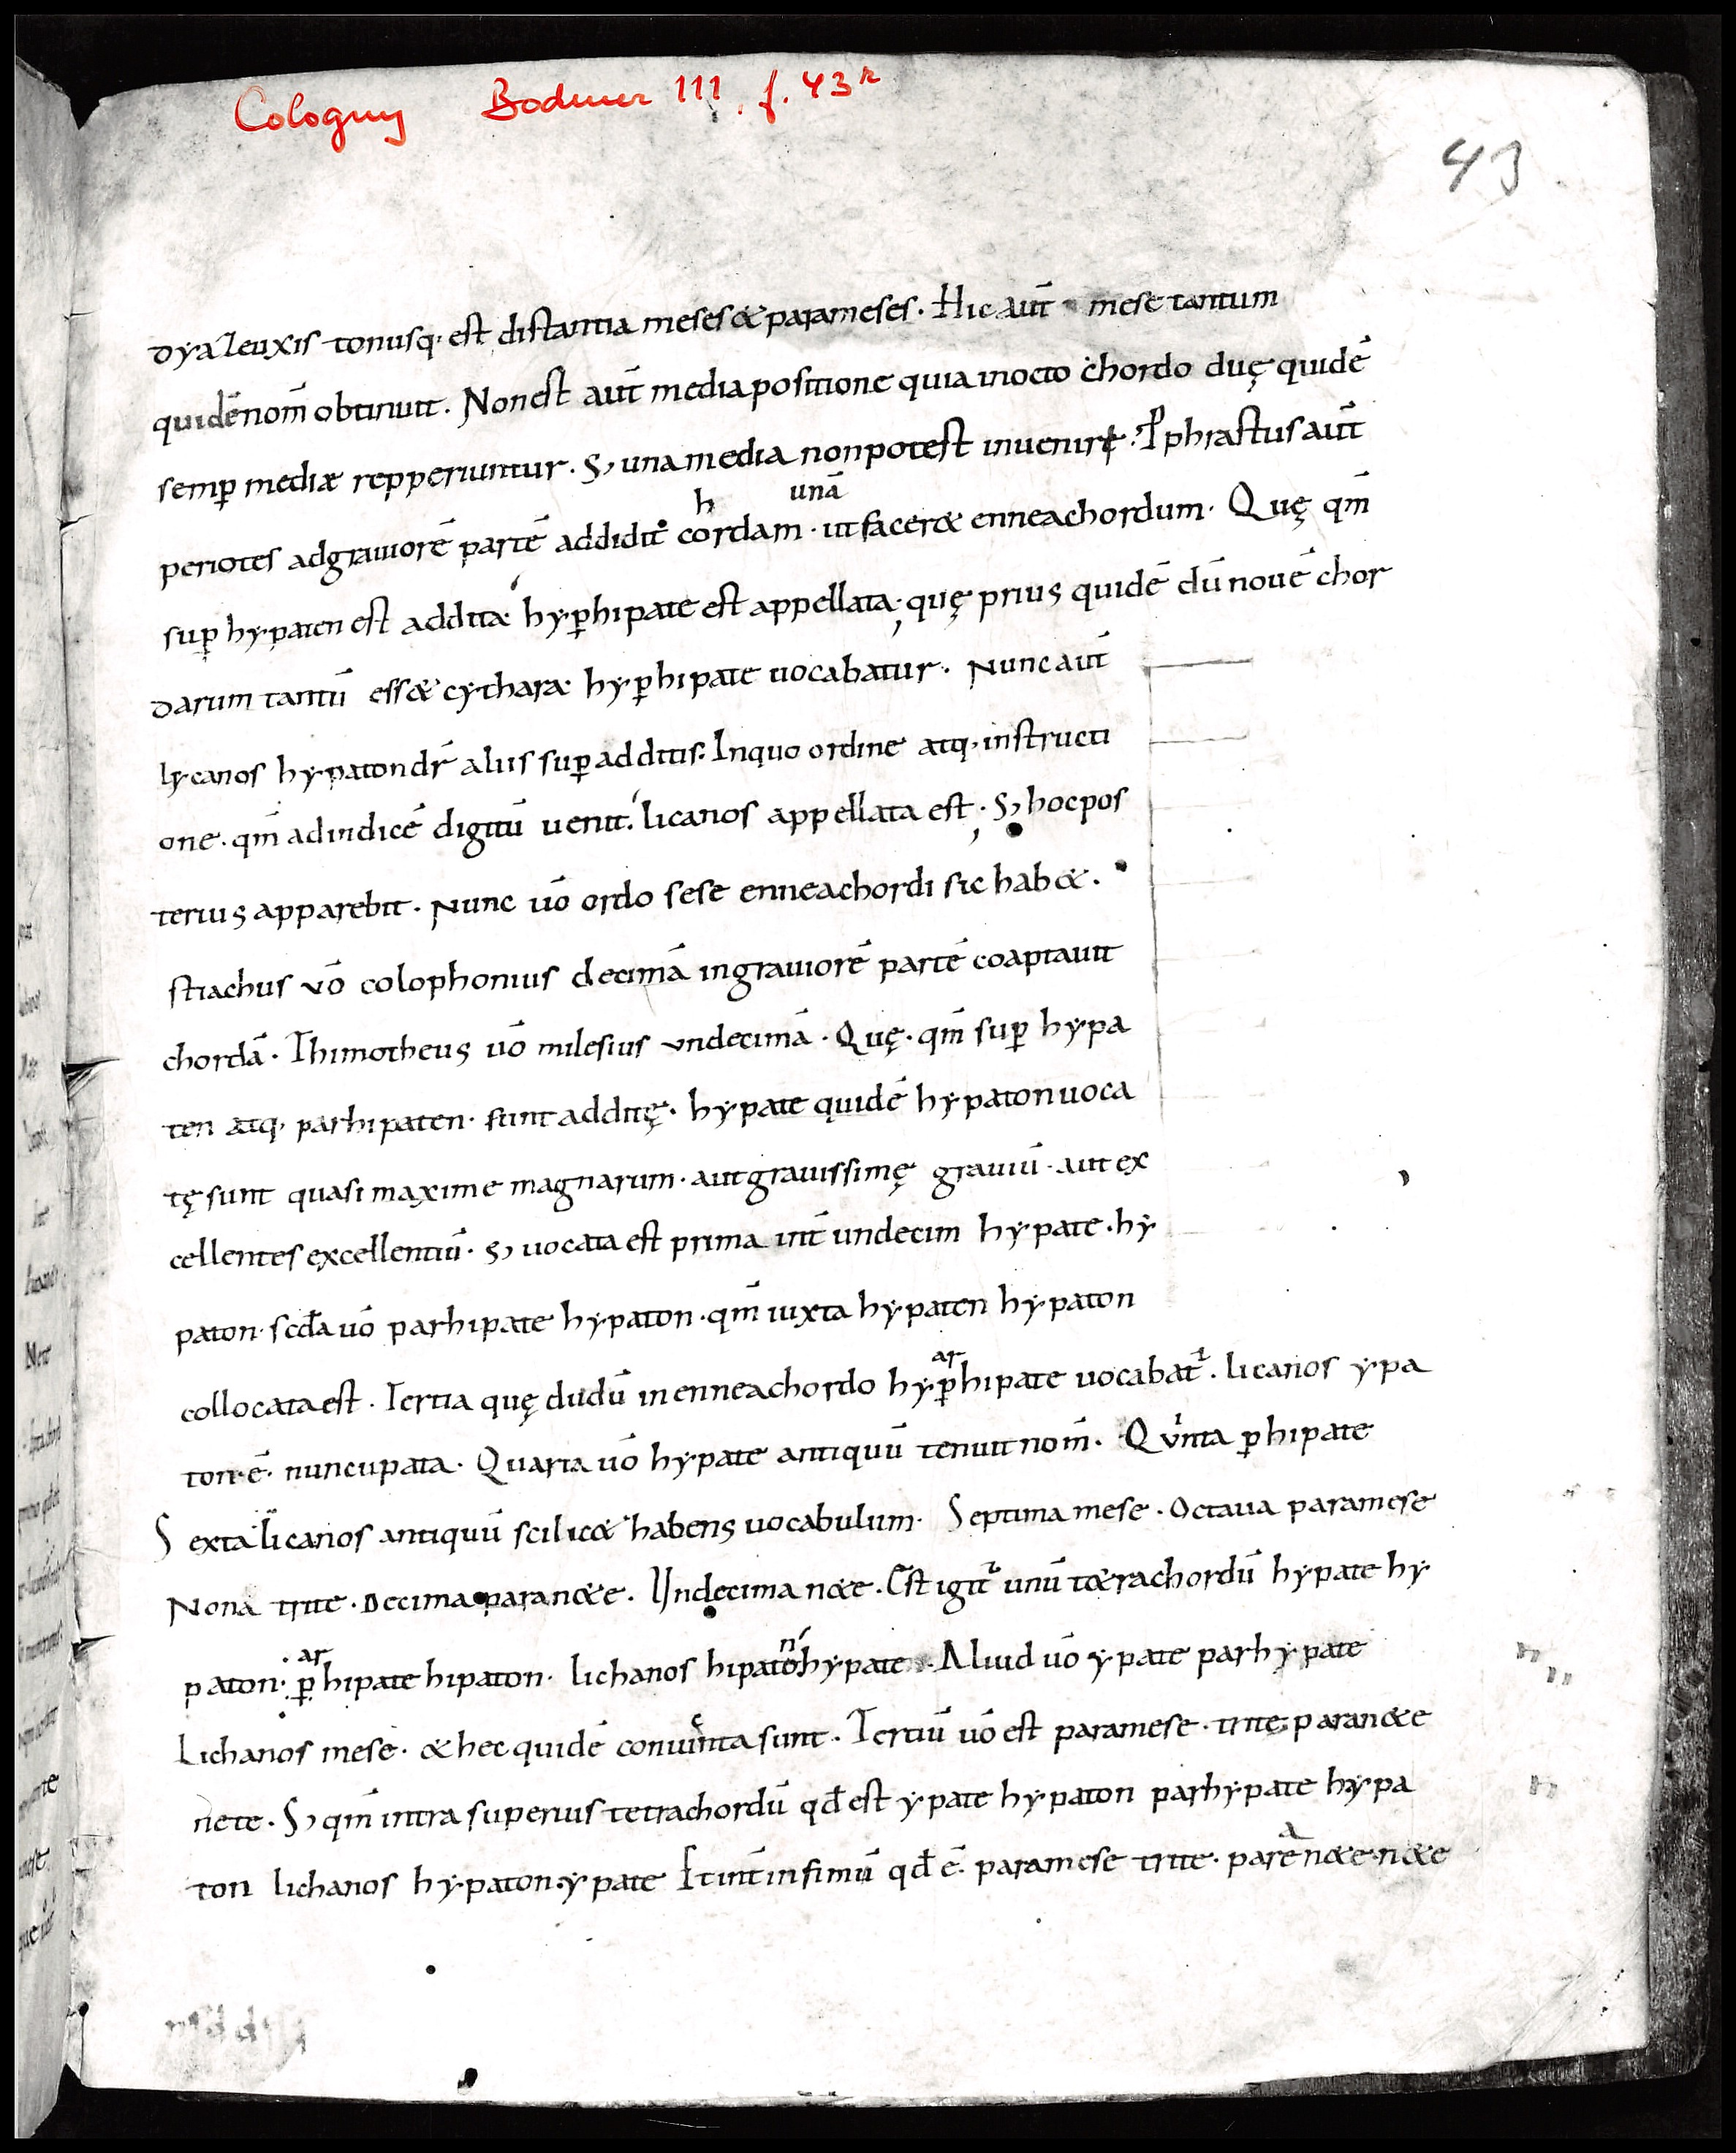 Cologny Bodmer 111, f. 43r
43
dyaZeuxis tonusq· est distantia meses & parameses. Hic aut̄ mese tantum
quidē nom̄ obtinuit. Non est aut̄ media positione quia in octo chordo duę quidē
semꝑ mediæ repperiuntur. S; una media non potest inveniri. Pphrastus aut̄
h unā
periotes ad graviorē partē addidit cordam · ut facer& enneachordum. Quę qm̄
suꝑ hypaten est addita hyꝑhipate est appellata, quę prius quidē dū novē chor
darum tantū ess& cythara hyꝑhipate vocabatur. Nunc aut̄
lycanos hypaton dr̄ aliis suꝑadditis. In quo ordine atq· instructi
one. qm̄ ad indicē digitū venit. licanos appellata est. S; hoc pos
terius apparebit. Nunc uō ordo sese enneachordi sic hab&.
striachus vō colophonius decimā in graviorē partē coaptavit
chordā. Thimotheus uō milesius undecimā. Quę· qm̄ suꝑ hypa
ten atq· parhipaten· sunt additę. hypate quidē hypaton voca
tę sunt quasi maxime magnarum· aut gravissimę graviū· aut ex
cellentes excellentiū. S; vocata est prima int̄ undecim hypate· hy
paton· scđa uō parhipate hypaton· qm̄ iuxta hypaten hypaton
ar
collocata est. Tertia quę dudū in enneachordo hyꝑhipate vocabat̄. licanos ypa
ton ē· nuncupata. Quarta uō hypate antiquū tenuit nom̄. Qvinta ꝑhipate
Sexta licanos antiquū scilic& habens vocabulum. Septima mese. Octava paramese
Nona trite. Decima paran&e. Undecima n&e. Est igit̄ unū t&rachordū hypate hy
ar n
paton· ꝑhipate hipaton. lichanos hipato hypate. Aliud uō ypate parhypate
Lichanos mese. & hec quidē coniuncta sunt. Tertiū uō est paramese· trite· paran&e
nete. S; qm̄ intra superius tetrachordū qđ est ypate hypaton parhypate hypa
a
ton lichanos hypaton· ypate Et int̄ infimū qđ ē· paramese trite· paren&e· n&e